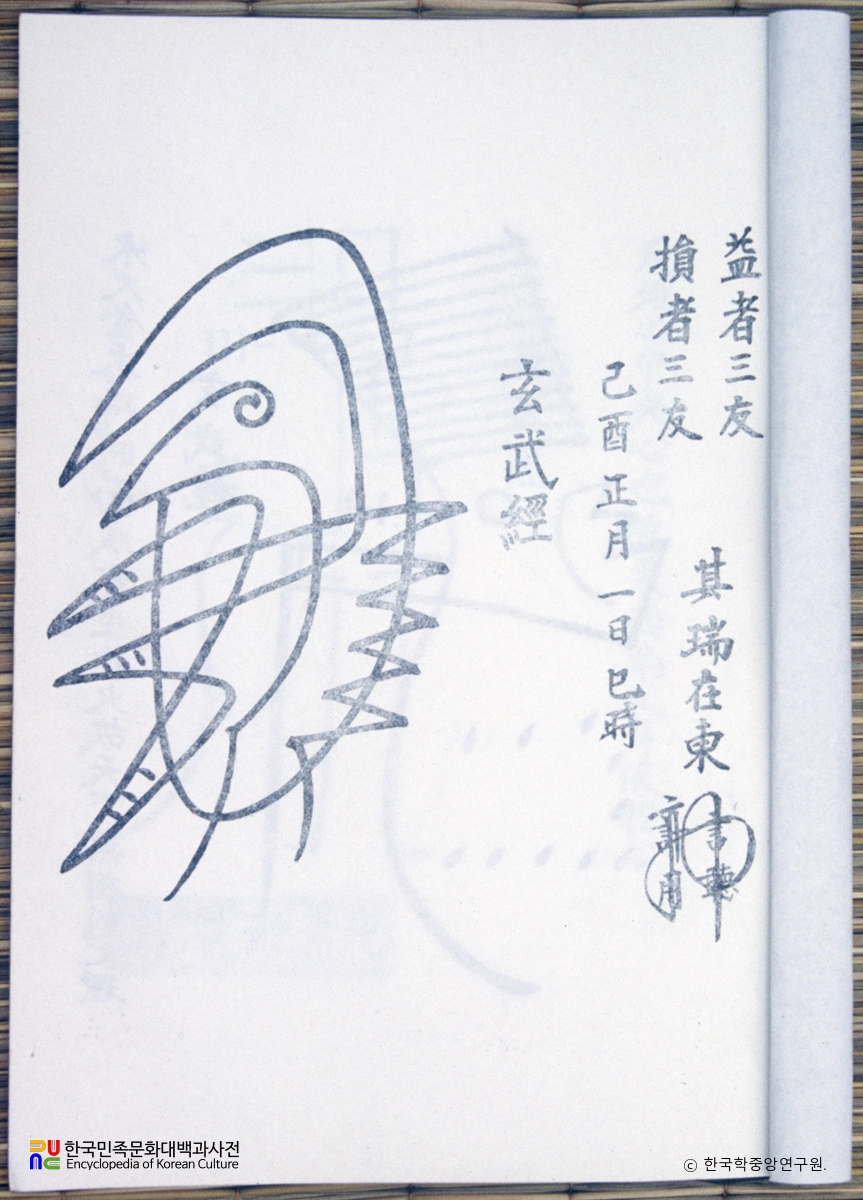 益者三友
損者三友
其瑞在東
言聽
計用
己酉 正月 一日 巳時
玄武經
한국민족문화대백과사전
Encyclopedia of Korean Culture
ⓒ 한국학중앙연구원.